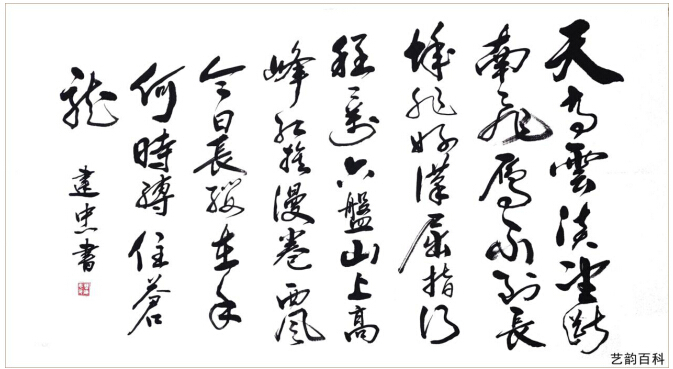 天高雲淡望斷
南飛雁不到長
城非好漢屈指行
程二萬六盤山上高
峰紅旗漫卷西風
今日長纓在手
何時縛住蒼
龍
建忠書
艺韵百科